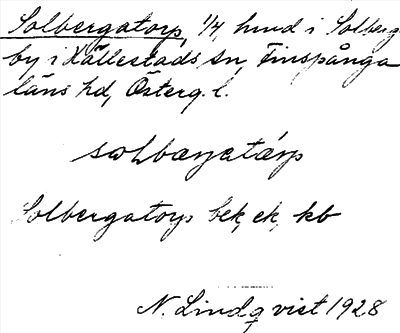 Solbergatorp, 1/4 hmd i Solberg
by i Hällestads sn, Finspånga
läns hd, Österg. l.
sωlbærjatårp
Solbergatorp bek, ek, kb
N. Lindqvist 1928